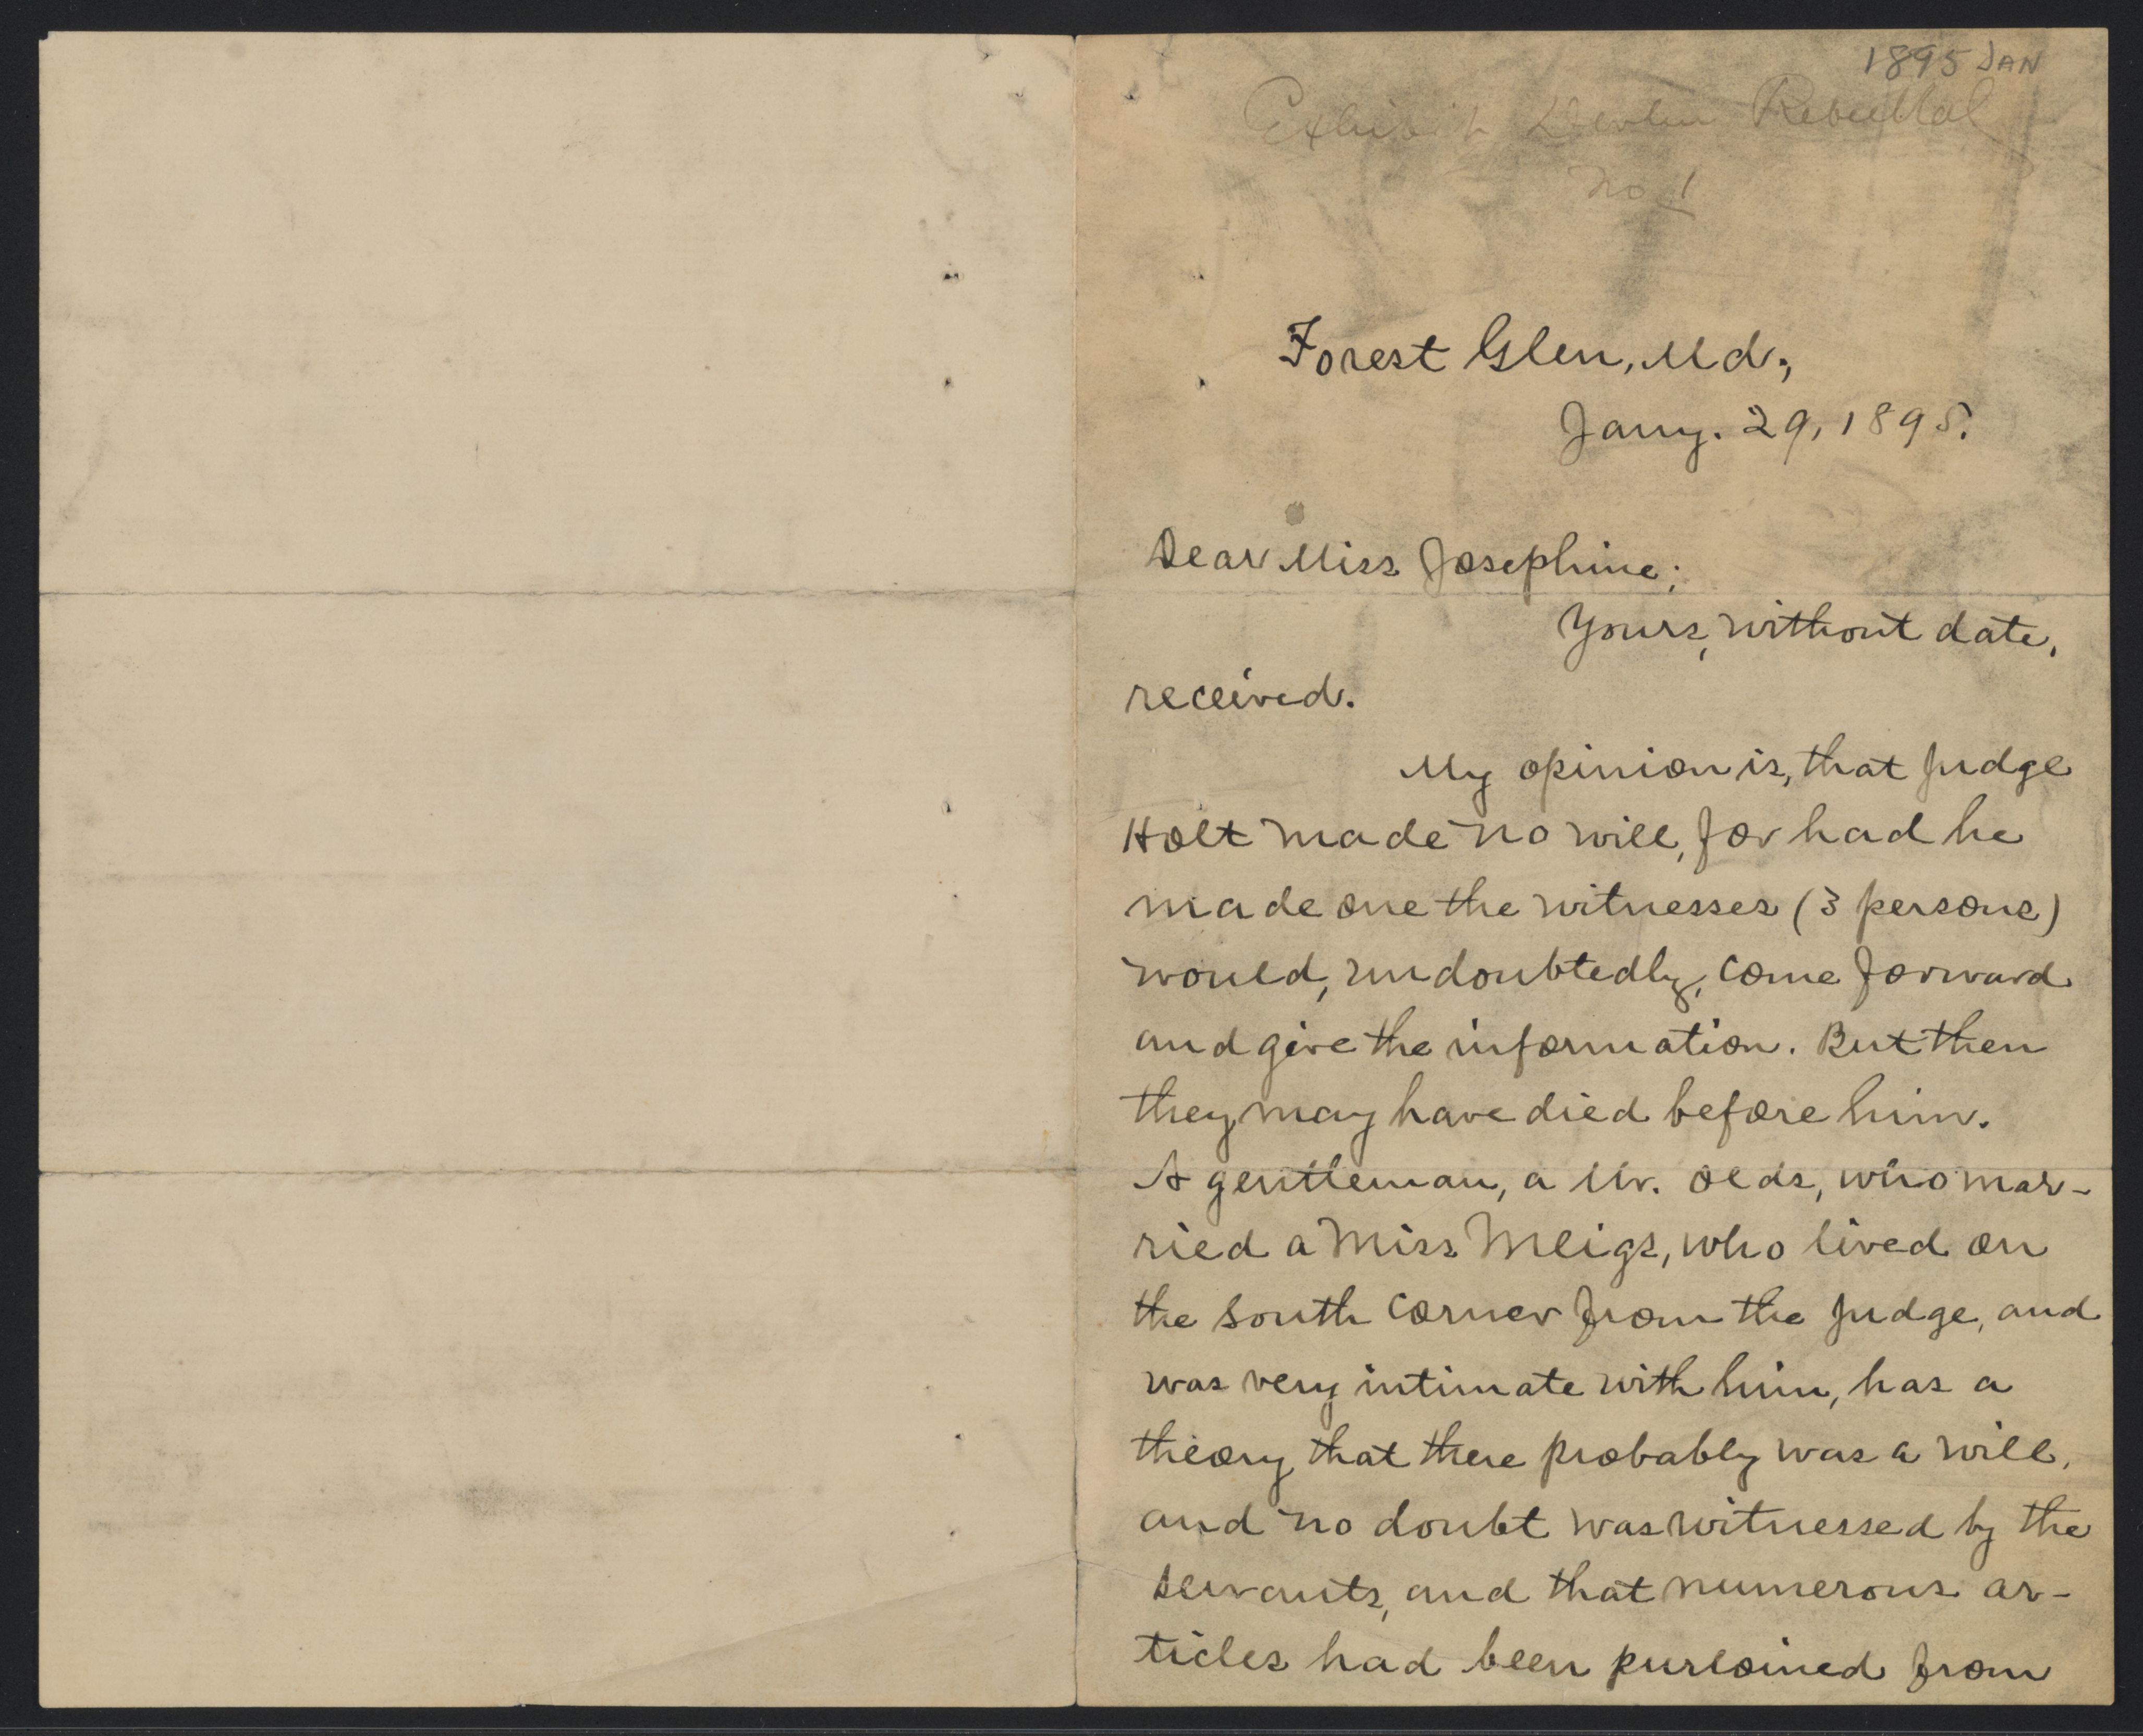 1895 JAN
Exhibit Devlin Rebuttal
No 1
Forest Glen, Md.,
Jany. 29, 1895.
Dear Miss Josephine;
Yours, without date,
received.
My opinion is, that Judge
Holt made no will, for had he
made one the witnesses (3 persons)
would, undoubtedly, come forward
and give the information. But then
they may have died before him.
A gentleman, a Mr. Olds, who mar-
ried a Miss Meigs, who lived on
the south corner from the Judge, and
was very intimate with him, has a
theory that there probably was a will,
and no doubt was witnessed by the
servants, and that numerous ar-
ticles had been purloined from